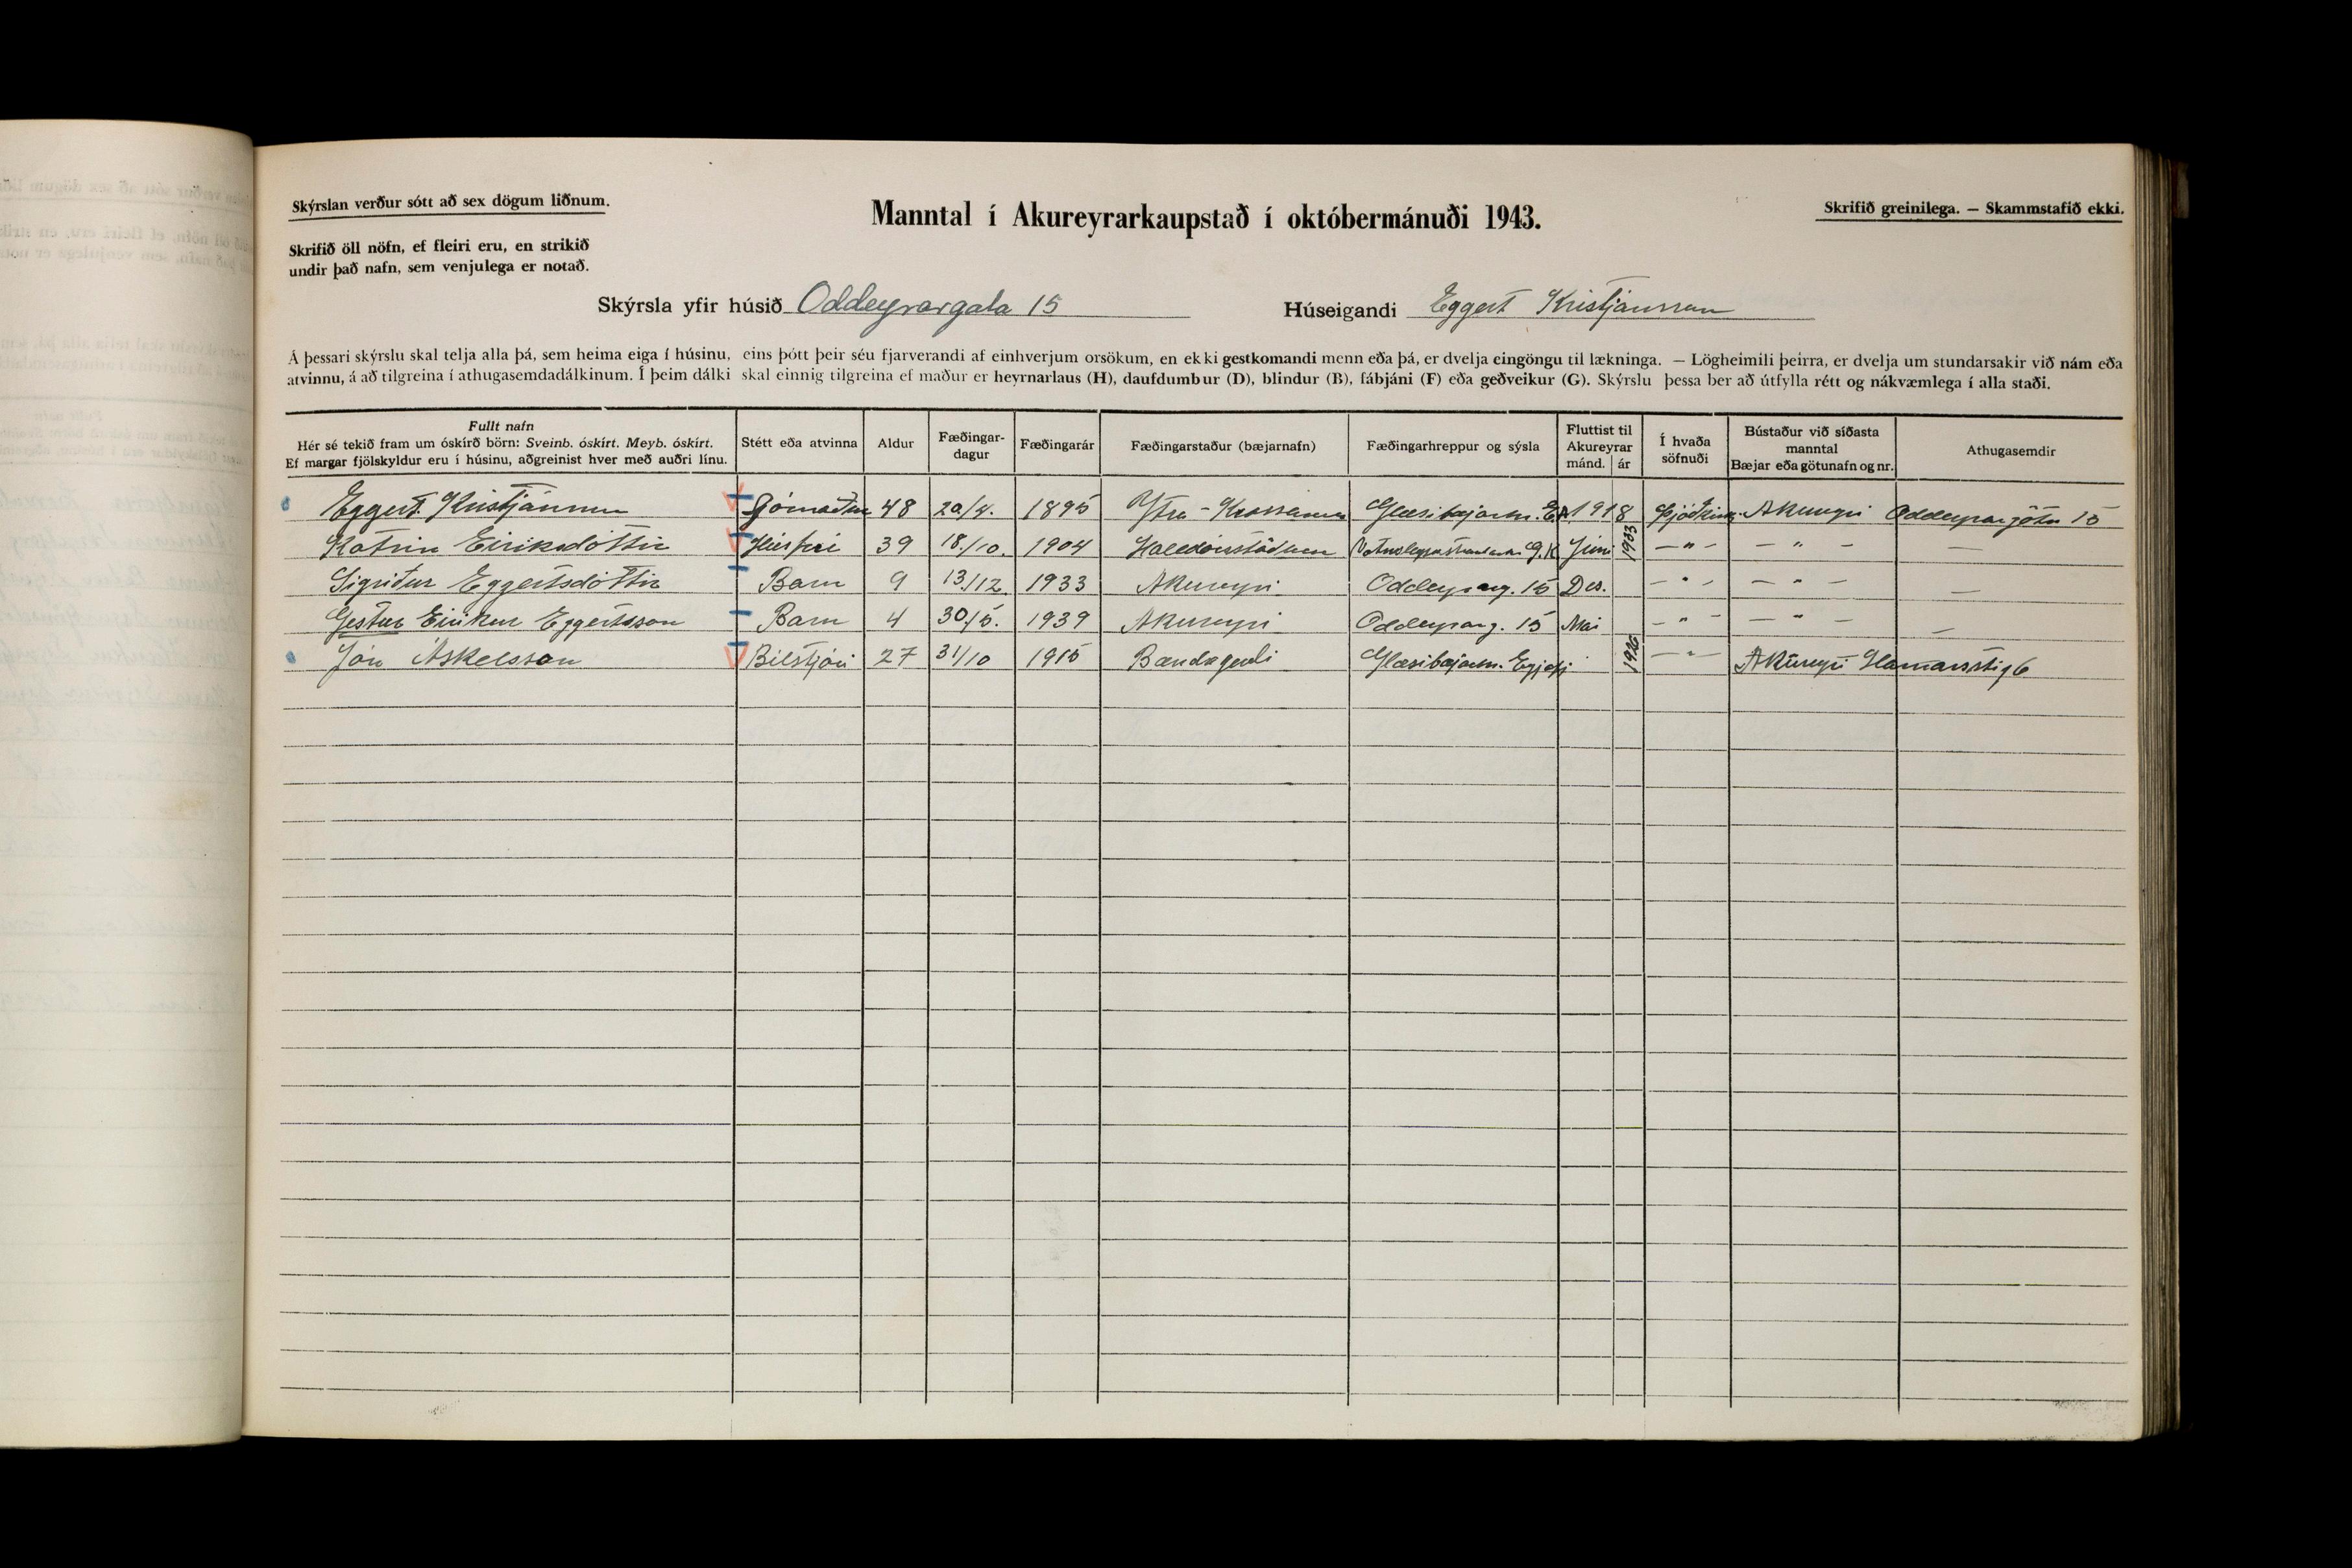 Skýrslan verður sótt að sex dögum liðnum.
Manntal í Akureyrarkaupstað í októbermánuði 1943.
Skrifið greinilega. — Skammstafið ekki.
Skrifið öll nöfn, ef fleiri eru, en strikið
undir það nafn, sem venjulega er notað.
Skýrsla yfir húsið Oddeyrargata 15
Húseigandi Eggert Kristjánsson
Á þessari skýrslu skal telja alla þá, sem heima eiga í húsinu, eins þótt þeir séu fjarverandi af einhverjum orsökum, en ekki gestkomandi menn eða þá, er dvelja eingöngu til lækninga. — Lögheimili þeirra, er dvelja um stundarsakir við nám eða
atvinnu, á að tilgreina í athugasemdadálkinum. Í þeim dálki skal einnig tilgreina ef maður er heyrnarlaus (H), daufdumbur (D), blindur (B), fábjáni (F) eða geðveikur (G). Skýrslu þessa ber að útfylla rétt og nákvæmlega í alla staði.
Fullt nafn
Hér sé tekið fram um óskírð börn: Sveinb. óskírt. Meyb. óskírt.
Ef margar fjölskyldur eru í húsinu, aðgreinist hver með auðri línu.
Stétt eða atvinna
Aldur
Fæðingar-
dagur
Fæðingarár
Fæðingarstaður (bæjarnafn)
Fæðingarhreppur og sýsla
Fluttist til
Akureyrar
mánd. ár
Í hvaða
söfnuði
Bústaður við síðasta
manntal
Bæjar eða götunafn og nr.
Athugasemdir
Eggert Kristjánsson Sjómaður 48 20/4. 1895 Ytra-Krossanes Glæsibæjarhr. EA 1918 Þjóðkirkj. Akureyri Oddeyrargötu 15
Katrín Eiríksdóttir Húsfrú 39 18./10. 1904 Halldórsstöðum G.K Júní 1933 — " — — " — —
Sigríður Eggertsdóttir Barn 9 13./12. 1933 Akureyri Oddeyrarg. 15 Des. — " — — " — —
Gestur Eiríkur Eggertsson Barn 4 30/5. 1939 Akureyri Oddeyrarg. 15 Maí — " — — " — —
Jón Áskelsson Bílstjóri 27 31/10 1915 Bandagerði Glæsibæjarhr. Eyjafj 1926 — " — Akureyri Hamarsstíg 6